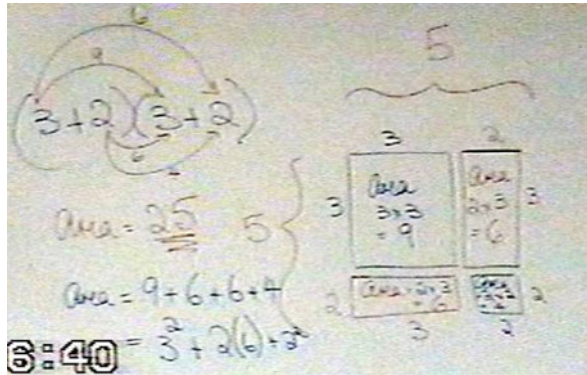 6
9
(3+2)(3+2)
6
4
area = 25
area = 9+6+6+4
= 3² + 2(6) + 2²
5
3 2
3
area
3x3
= 9
area
2x3
= 6
3
5
2
area = 2x3
= 6
area
2x2
2
3 2
6:40